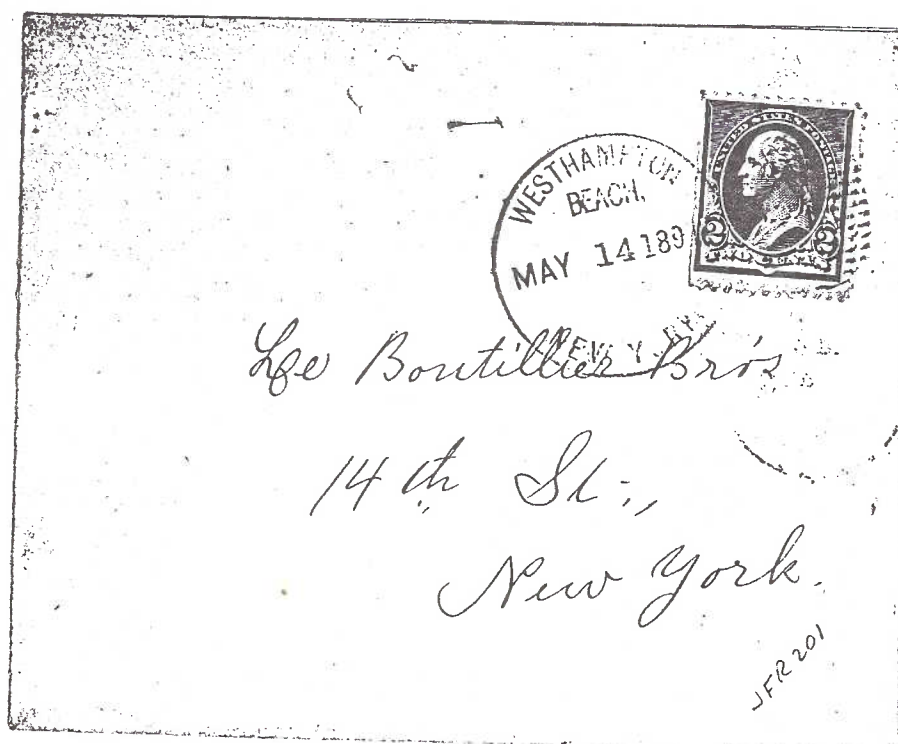 WESTHAMPTON
BEACH,
MAY 14 189
UNITED STATES POSTAGE
2 2
Le Boutillier Bros
14th St.,
New York.
JFR 201